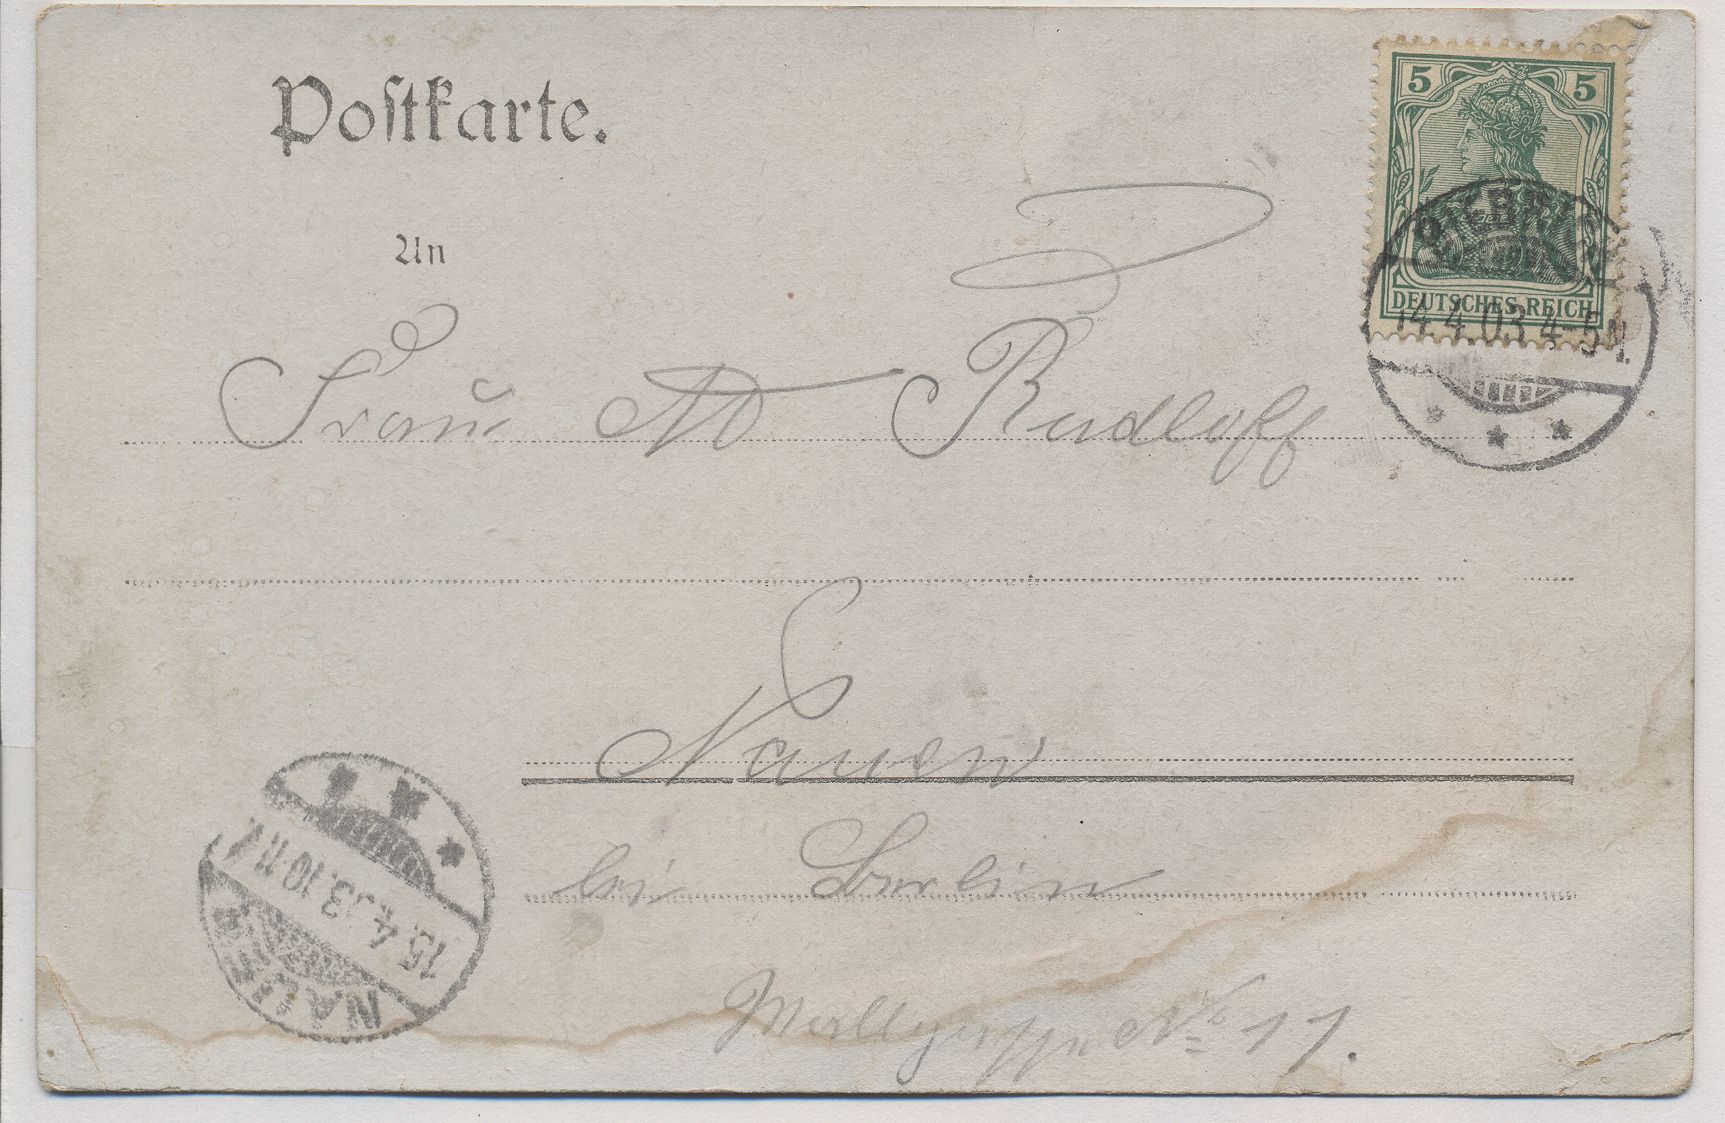 Postkarte.
5 5
DEUTSCHES REICH
14.4.03 4-5N.
An
Frau A Rudloff
Nauen
bei Berlin
No 11.
NAUEN
15.4.03.10-11V.